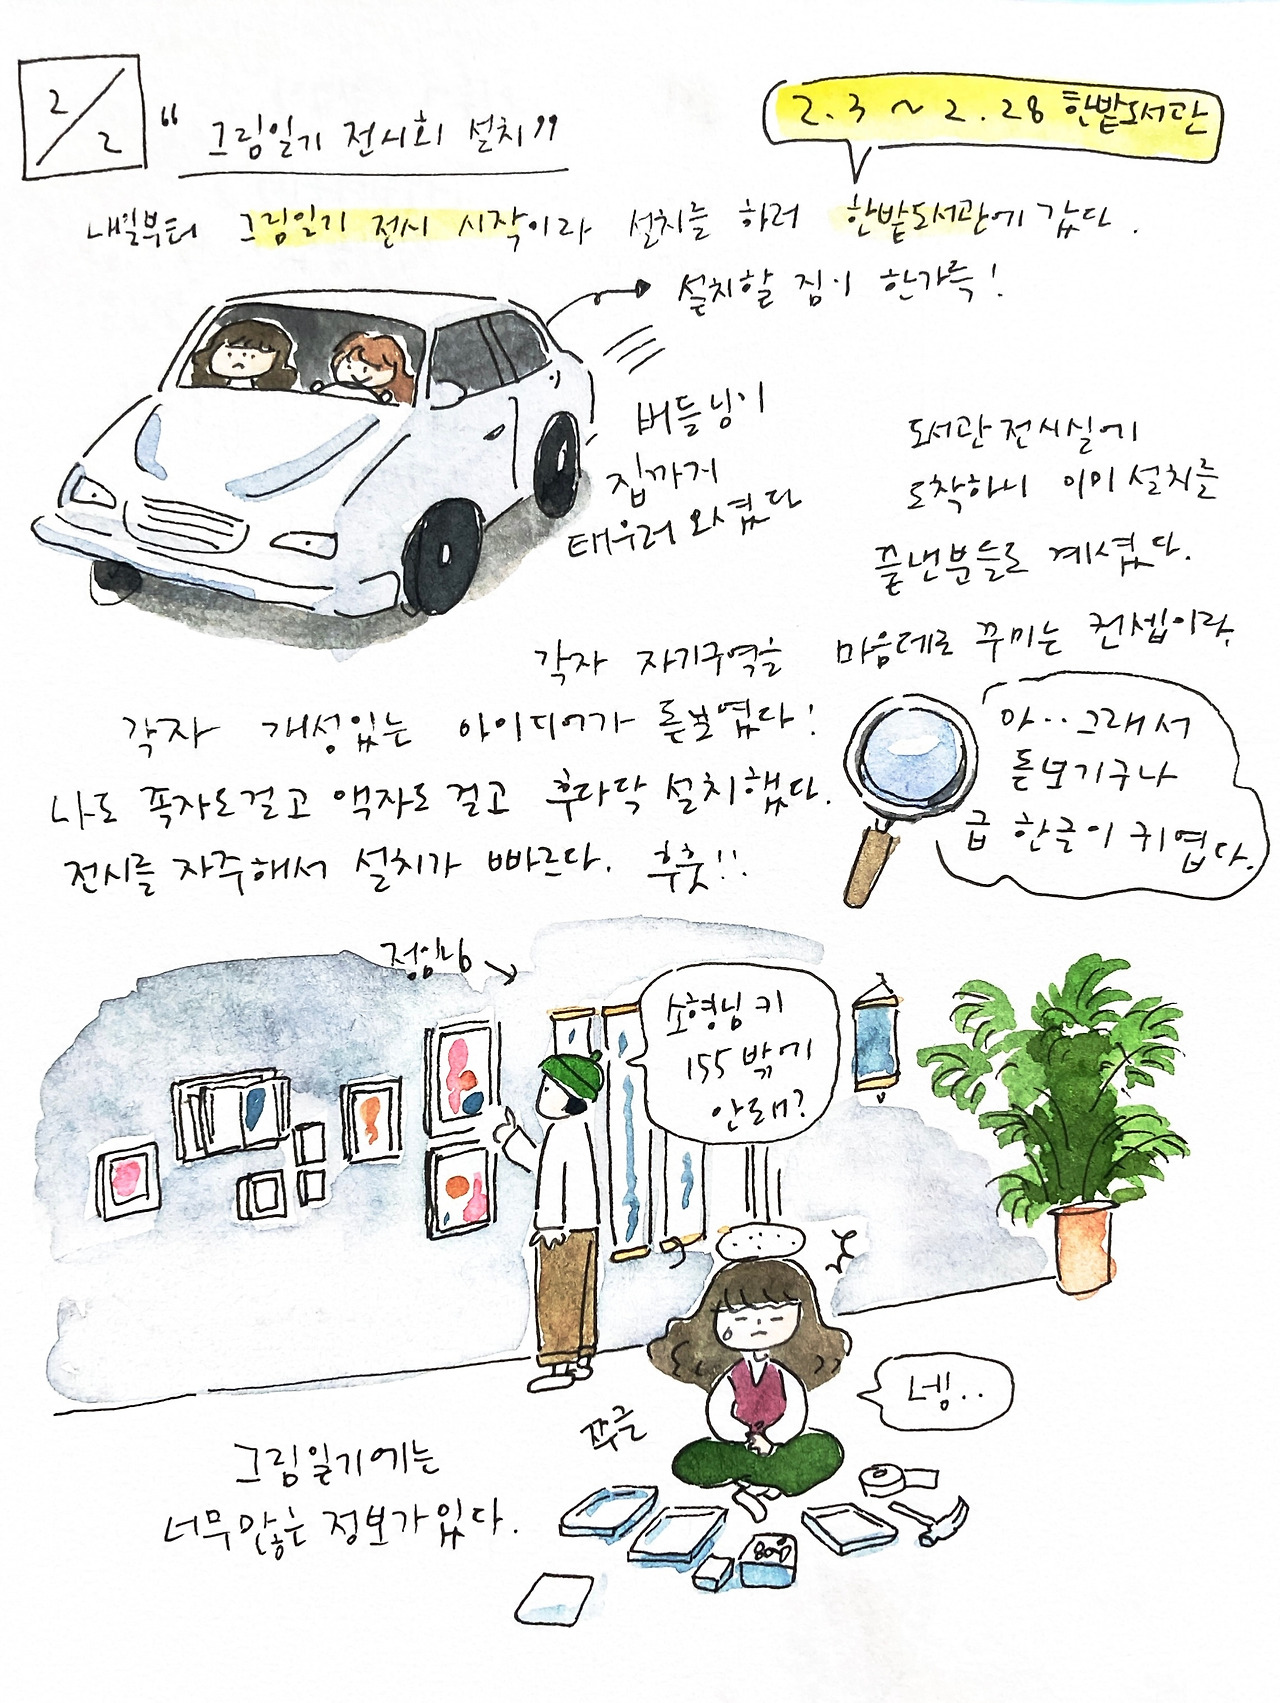 2/2 "그림일기 전시회 설치"
2.3 ~ 2.28 한밭도서관
내일부터 그림일기 전시 시작이라 설치를 하러 한밭도서관에 갔다.
설치할 짐이 한가득!
버들님이
집까지
태우러 오셨다
도서관 전시실에
도착하니 이미 설치를
끝낸분들도 계셨다.
각자 자기구역을 마음데로 꾸미는 컨셉이라,
각자 개성있는 아이디어가 돋보였다!
나도 족자도 걸고 액자도 걸고 후다닥 설치했다.
전시를 자주해서 설치가 빠르다. 후훗!!
아..그래서
돋보기구나
급 한글이 귀엽다.
정임님
소형님 키
155밖에
안돼?
넹..
쭈글
그림일기에는
너무많은 정보가있다.